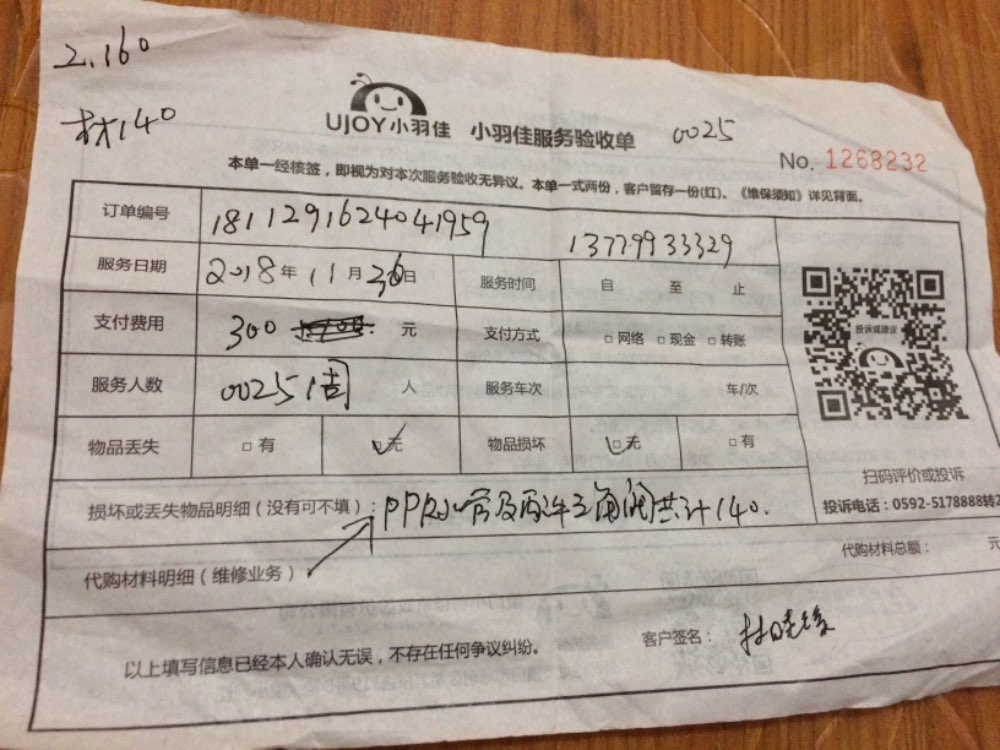 2.160
材140
UJOY小羽佳 小羽佳服务验收单 0025
No. 1268232
本单一经核签，即视为对本次服务验收无异议。本单一式两份，客户留存一份(红)。《维保须知》详见背面。
订单编号 18112916240041959 13779933329
服务日期 2018年11月30日 服务时间 自 至 止
支付费用 300 元 支付方式 □网络 □现金 □转账
投诉或建议
服务人数 00251 人 服务车次 车/次
物品丢失 □有 □无 物品损坏 □无 □有
扫码评价或投诉
损坏或丢失物品明细（没有可不填）： PPR水管及配件 角阀共计140.
投诉电话：0592-5178888转2
代购材料明细（维修业务） 代购材料总额： 元
以上填写信息已经本人确认无误，不存在任何争议纠纷。 客户签名：